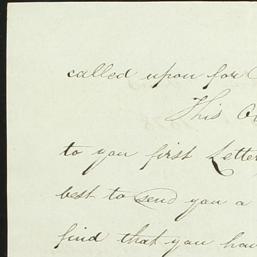 called upon for
This
to you first Letter
best to send you a
find that you hav